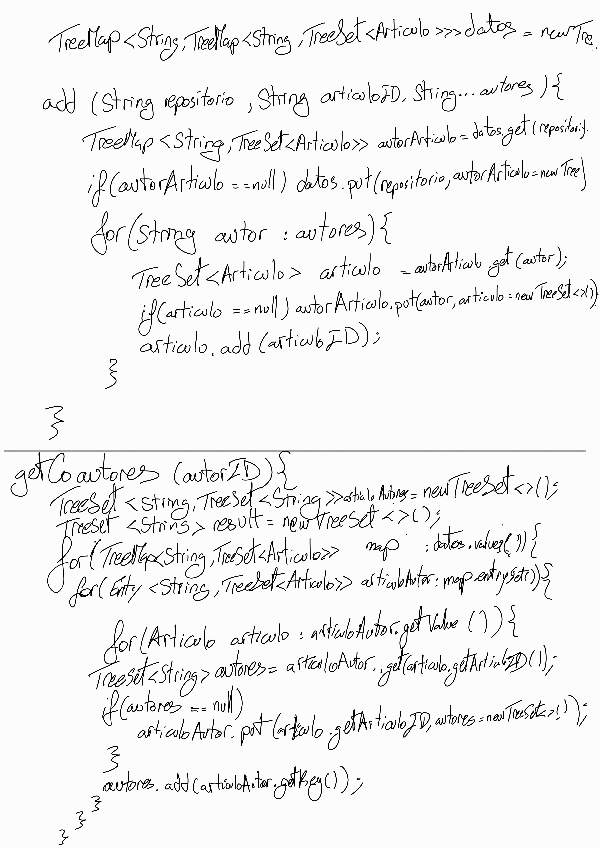 TreeMap<String,TreeMap<String,TreeSet<Articulo>>>datos = new Tre.
add (String repositorio , String articuloID, String... autores ){
TreeMap<String,TreeSet<Articulo>> autorArticulo=datos.get(repositori.
if(autorArticulo ==null) datos.put(repositorio,autorArticulo=new Tree)
for(String autor : autores){
TreeSet<Articulo> articulo = autorArticulo get (autor);
if(articulo ==null) autorArticulo.put(autor, articulo=new TreeSet<>())
articulo.add (articuloID);
}
}
getCoautores (autorID){
TreeSet <String,TreeSet<String>>articuloAutores= new TreeSet<>();
TreeSet <String> result = new TreeSet <>();
for(TreeMap<String,TreeSet<Articulo>> map : datos.values()){
for(Entry <String,TreeSet<Articulo>> articuloAutor:map.entrySet()){
for(Articulo articulo : articuloAutor.getValue ()){
TreeSet<String> autores= articuloAutor..get(articulo.getArticuloID();
if(autores ==null)
articuloAutor.put (articulo.getArticuloID,autores=newTreeSet<>());
}
autores.add(articuloAutor.getKey());
}
}
}